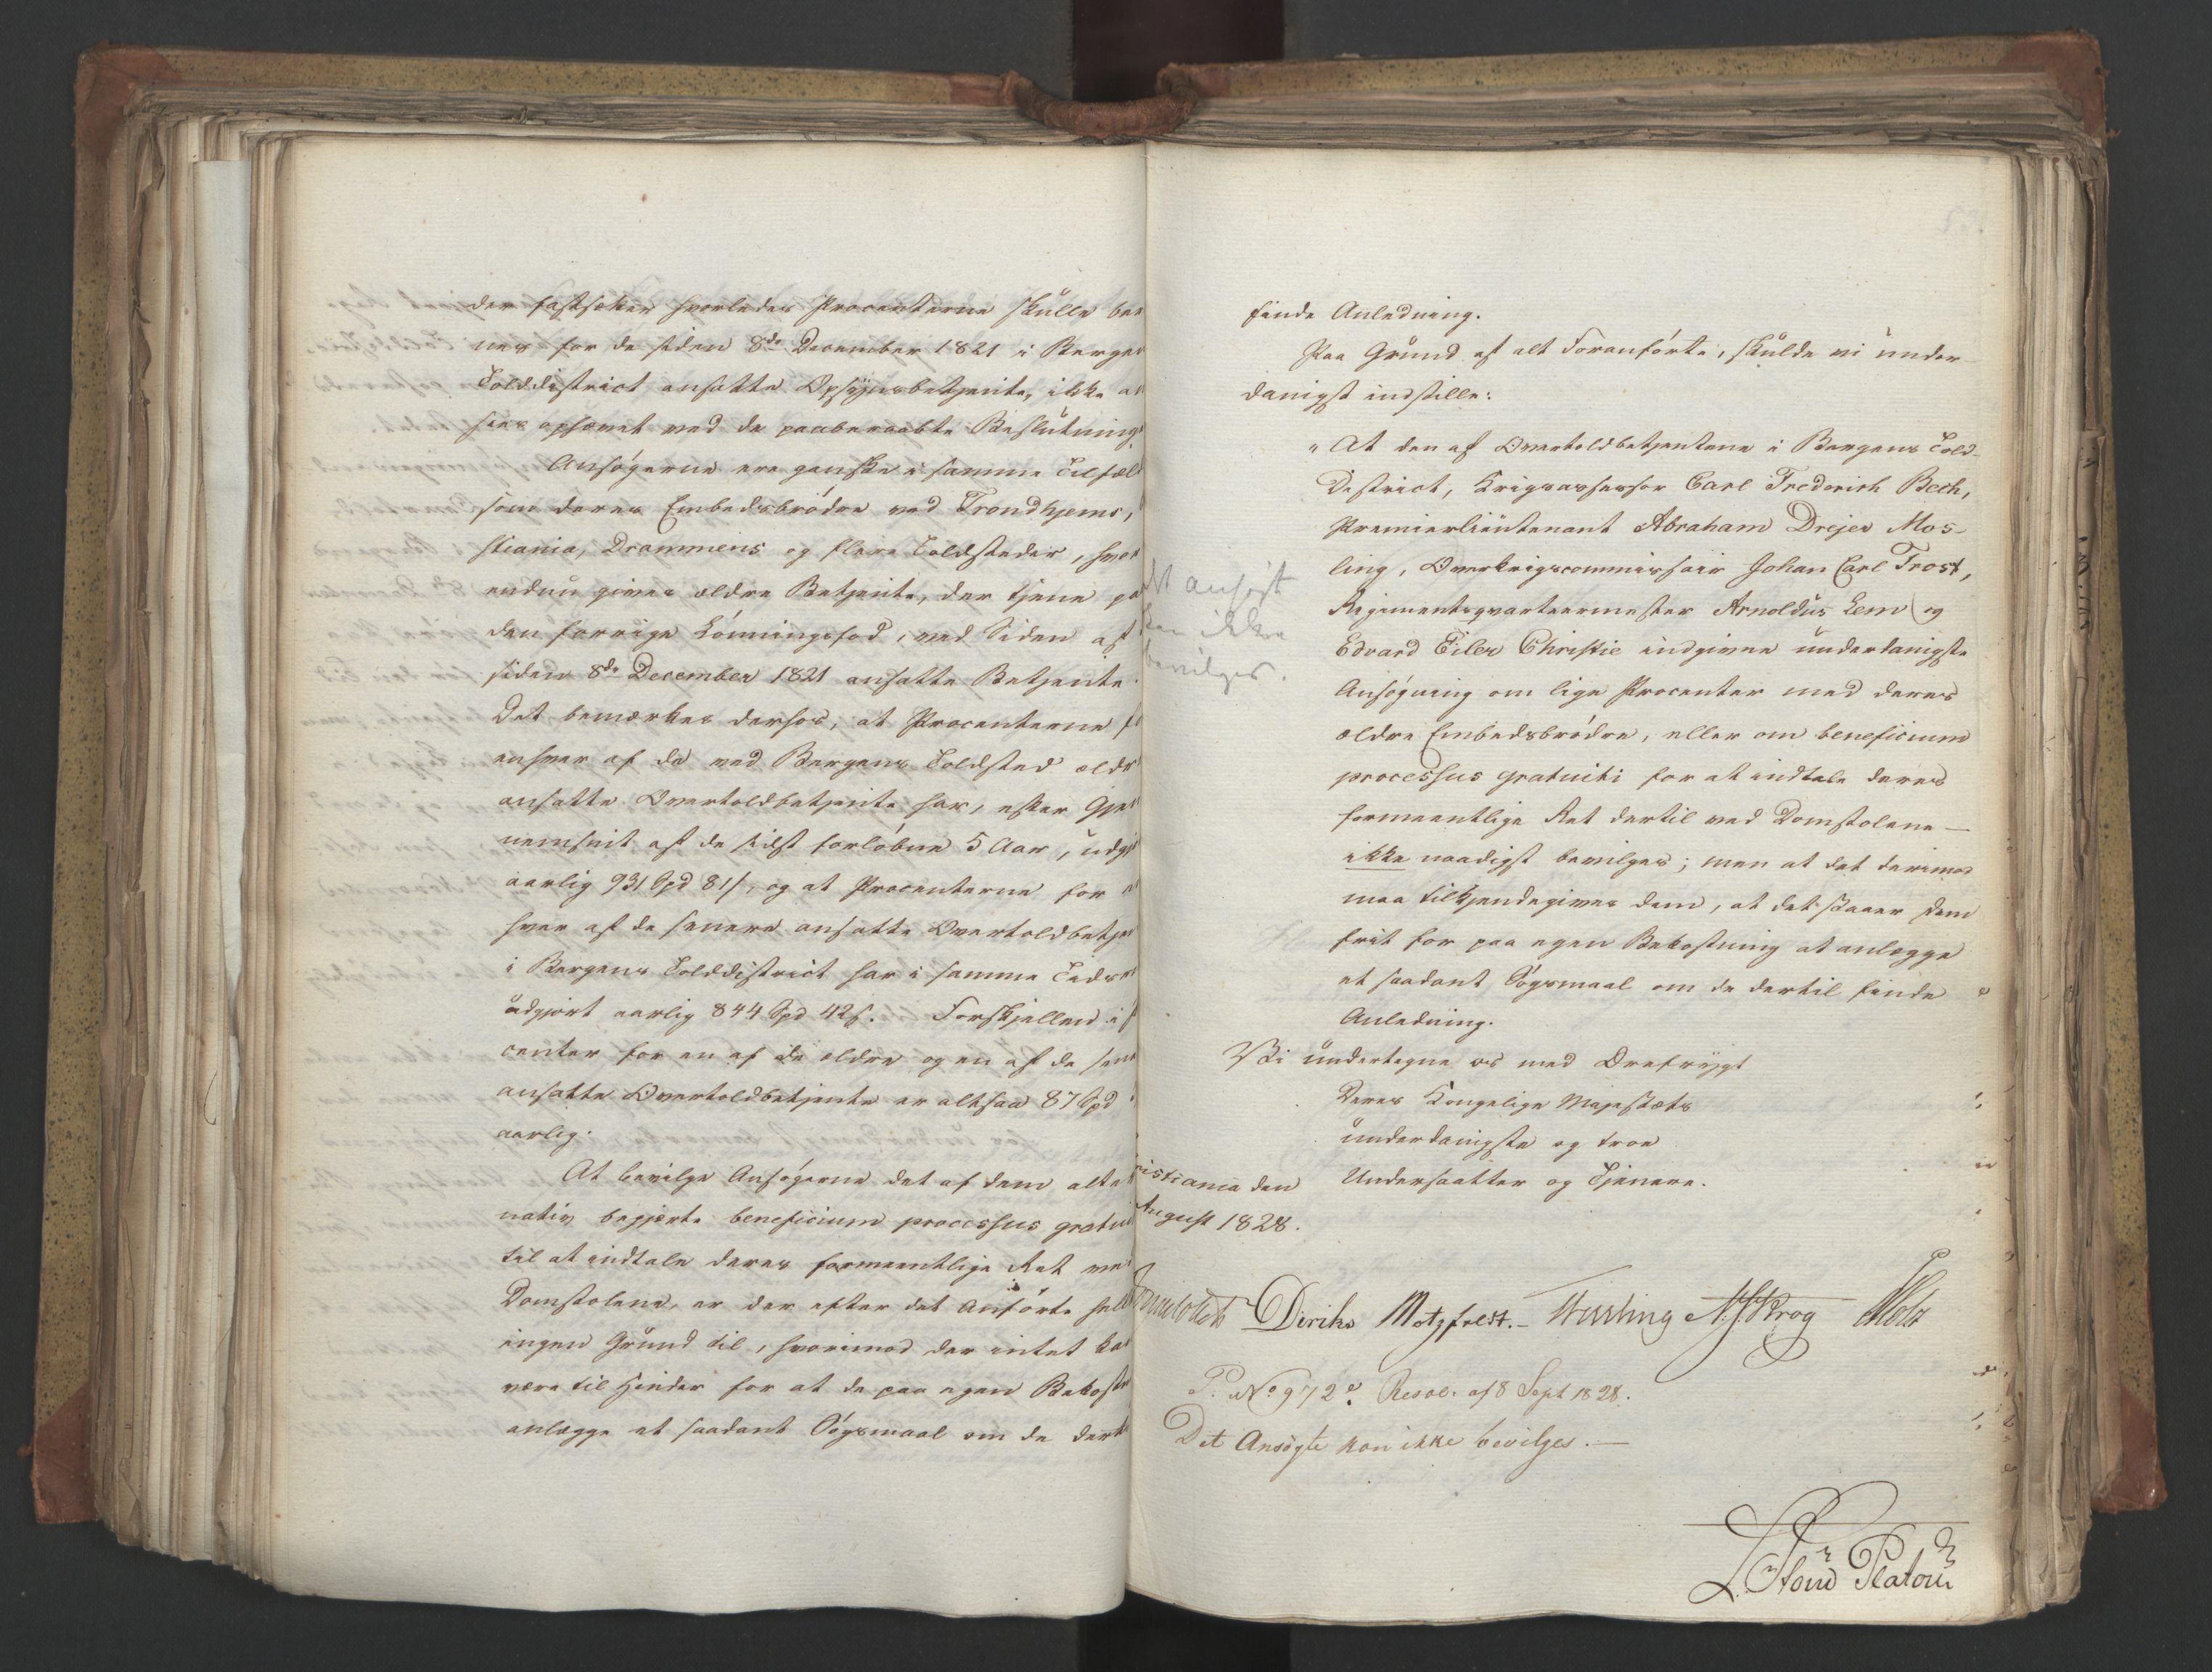 der fastsætter hvorledes Procenterne skulle ber
nes for de siden 8de December 1821 i Berge
Tolddistrict ansatte Opsynsbetjente, ikke a
sees ophævet ved de paaberaabte Beslutning
Ansøgerne ere ganske i samme Tilfæl
som deres Embedsbrødre ved Trondhjems,
stiania, Drammens og flere Toldsteder, hvor
endnu gives ældre Betjente, der tjene pa
den forrige Lønningsfod, ved Siden af
siden 8de December 1821 ansatte Betjente.
Det bemærkes derhos, at Procenterne f
enhver af de ved Bergens Toldsted ældr
ansatte Overtoldbetjente har, efter Gjen
nemsnit af de sidst forløbne 5 Aar, udgj
aarlig 931 Spd 81 s, og at Procenterne for e
hver af de senere ansatte Overtoldbetje
i Bergens Tolddistrict har i samme Tidsr
udgjort aarlig 844 Spd 42 s. Forskjellen i
center for en af de ældre og en af de sene
ansatte Overtoldbetjente er altsaa 87 Spd
aarlig.
At bevilge Ansøgerne det af dem alte
nativ begjærte beneficium processus gratui
til at indtale deres formeentlige Ret ve
Domstolene, er der efter det Anførte hel
ingen Grund til, hvorimod der intet ka
være til Hinder for at de paa egen Bekost
anlægge et saadant Søgsmaal om de dert
finde Anledning.
Paa Grund af alt Foranførte, skulde vi under-
danigst indstille:
"At den af Overtoldbetjentene i Bergens Told-
District, Krigsassessor Carl Frederich Bech,
Premierlieutenant Abraham Drejer Mos-
ling, Overkrigscommissair Johan Carl Frost,
Regimentsqvarteermester Arnoldus Lem og
Edvard Eiler Christie indgivne underdanigste
Ansøgning om lige Procenter med deres
ældre Embedsbrødre, eller om beneficium
processus gratuiti for at indtale deres
formeentlige Ret dertil ved Domstolene —
ikke naadigst bevilges; men at det derimod
maa tilkjendegives dem, at det staaer dem
frit for paa egen Bekostning at anlægge
et saadant Søgsmaal om de dertil finde
Anledning.
det ansøgt
kan ikke
bevilges.
Vi undertegne os med Ærefrygt
Deres Kongelige Majestæts
underdanigste og troe
Undersaatter og Tjenere.
istiania den
August 1828.
Diriks Motzfeldt. N. J. Krog Holst
P. No 972. Resol. af 8 Sept 1828.
Det Ansøgte kan ikke bevilges. —
L. Stoud Platou